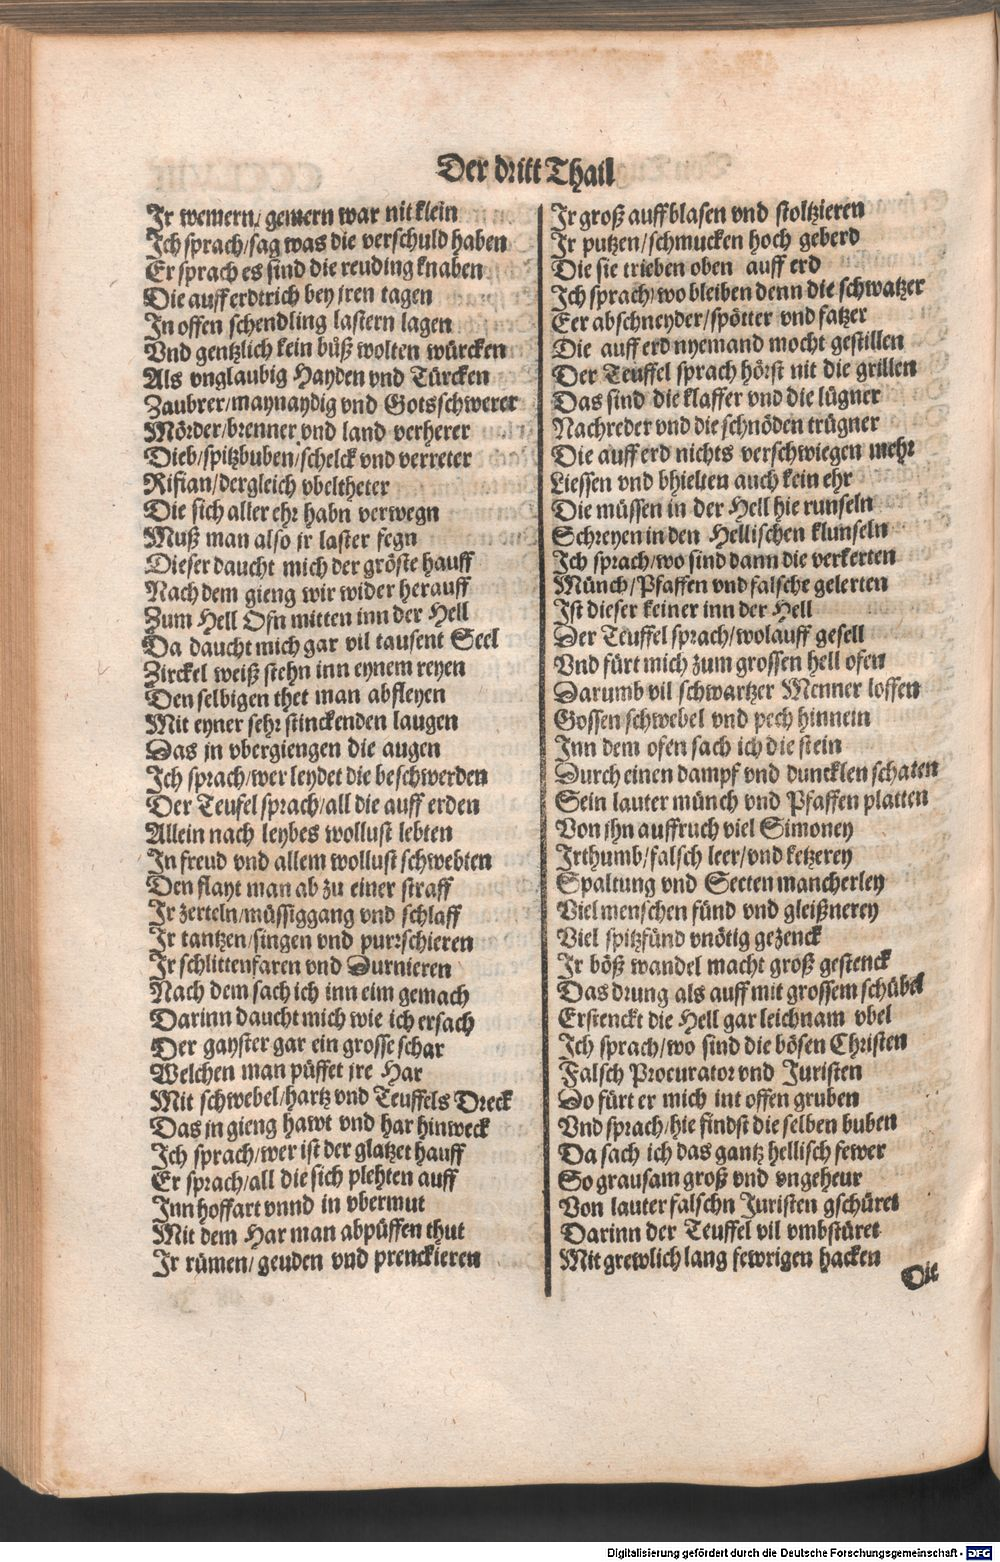 Der dritt Thail
Jr wemern/ gemern war nit klein
Jch sprach/sag was die verschuld haben
Er sprach es sind die reuding knaben
Die auff erdtrich bey jren tagen
Jn offen schendling lastern lagen
Vnd gentzlich kein büß wolten würcken
Als vnglaubig Hayden vnd Türcken
Zaubrer/maynaydig vnd Gotsschwerer
Mörder/brenner vnd land verherer
Dieb/spitzbuben/schelck vnd verreter
Rifian/dergleich vbeltheter
Die sich aller ehr habn verwegn
Muß man also jr laster fegn
Dieser daucht mich der gröste hauff
Nach dem gieng wir wider herauff
Zum Hell Ofn mitten inn der Hell
Da daucht mich gar vil tausent Seel
Zirckel weiß stehn inn eynem reyen
Den selbigen thet man abfleyen
Mit eyner sehr stinckenden laugen
Das jn vbergiengen die augen
Jch sprach/wer leydet die beschwerden
Der Teufel sprach/all die auff erden
Allein nach leybes wollust lebten
Jn freud vnd allem wollust schwebten
Den flayt man ab zu einer straff
Jr zerteln/müssiggang vnd schlaff
Jr tantzen/singen vnd purrschieren
Jr schlittenfaren vnd Durnieren
Nach dem sach ich inn eim gemach
Darinn daucht mich wie ich ersach
Der gayster gar ein grosse schar
Welchen man püffet jre Har
Mit schwebel/hartz vnd Teuffels Dreck
Das jn gieng hawt vnd har hinweck
Jch sprach/wer ist der glatzet hauff
Er sprach/all die sich plehten auff
Jnn hoffart vnnd in vbermut
Mit dem Har man abpüffen thut
Jr rümen/ geuden vnd prenckieren
Jr groß auffblasen vnd stoltzieren
Jr putzen/schmucken hoch geberd
Die sie trieben oben auff erd
Jch sprach/wo bleiben denn die schwatzer
Eer abschneyder/spötter vnd fatzer
Die auff erd nyemand mocht gestillen
Der Teuffel sprach hörst nit die grillen
Das sind die klaffer vnd die lügner
Nachreder vnd die schnöden trügner
Die auff erd nichts verschwiegen mehr
Liessen vnd bhielten auch kein ehr
Die müssen in der Hell hie runseln
Schreyen in den Hellischen klunseln
Jch sprach/wo sind dann die verkerten
Münch/Pfaffen vnd falsche gelerten
Jst dieser keiner inn der Hell
Der Teuffel sprach/wolauff gesell
Vnd fürt mich zum grossen hell ofen
Darumb vil schwartzer Menner loffen
Gossen schwebel vnd pech hinnein
Jnn dem ofen sach ich die stein
Durch einen dampf vnd duncklen schaten
Sein lauter münch vnd Pfaffen platten
Von ihn auffruch viel Simoney
Jrthumb/falsch leer/vnd ketzerey
Spaltung vnd Secten mancherley
Viel menschen fünd vnd gleißnerey
Viel spitzfünd vnötig gezenck
Jr böß wandel macht groß gestenck
Das drung als auff mit grossem schübel
Erstenckt die Hell gar leichnam vbel
Jch sprach/wo sind die bösen Christen
Falsch Procurator vnd Juristen
Do fürt er mich int offen gruben
Vnd sprach/hie findst die selben buben
Da sach ich das gantz hellisch fewer
So grausam groß vnd vngeheur
Von lauter falschn Juristen gschüret
Darinn der Teuffel vil vmbstüret
Mit grewlich lang fewrigen hacken
Die
Digitalisierung gefördert durch die Deutsche Forschungsgemeinschaft - DFG